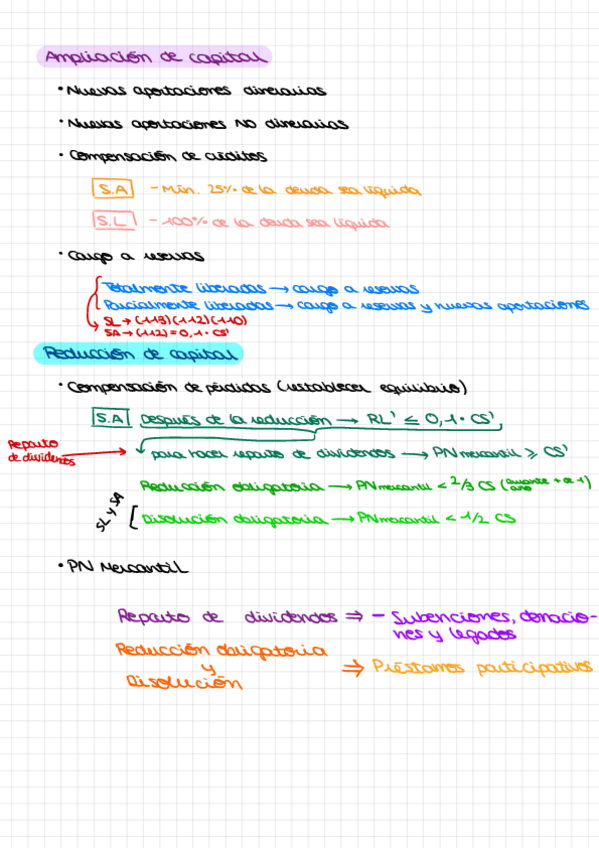 Ampliación de capital
· Nuevas aportaciones dinerarias
· Nuevas aportaciones NO dinerarias
· Compensación de créditos
S.A - Mín. 25% de la deuda sea líquida
S.L - 100% de la deuda sea líquida
· Cargo a reservas
Totalmente liberadas → cargo a reservas
Parcialmente liberadas → cargo a reservas y nuevas aportaciones
SL → (113)(112)(110)
SA → (112) = 0,1 · CS'
Reducción de capital
· Compensación de pérdidas (restablecer equilibrio)
S.A Después de la reducción → RL' ≤ 0,1 · CS',
Reparto
de dividendos
para hacer reparto de dividendos → PN mercantil ≥ CS'
Reducción obligatoria → PN mercantil < 2/3 CS (durante + de 1 año)
SL y SA
[ Disolución obligatoria → PN mercantil < 1/2 CS
· PN Mercantil
Reparto de dividendos ⇒ - Subenciones, donacio-
nes y legados
Reducción obligatoria
y
Disolución
⇒ Préstamos participativos